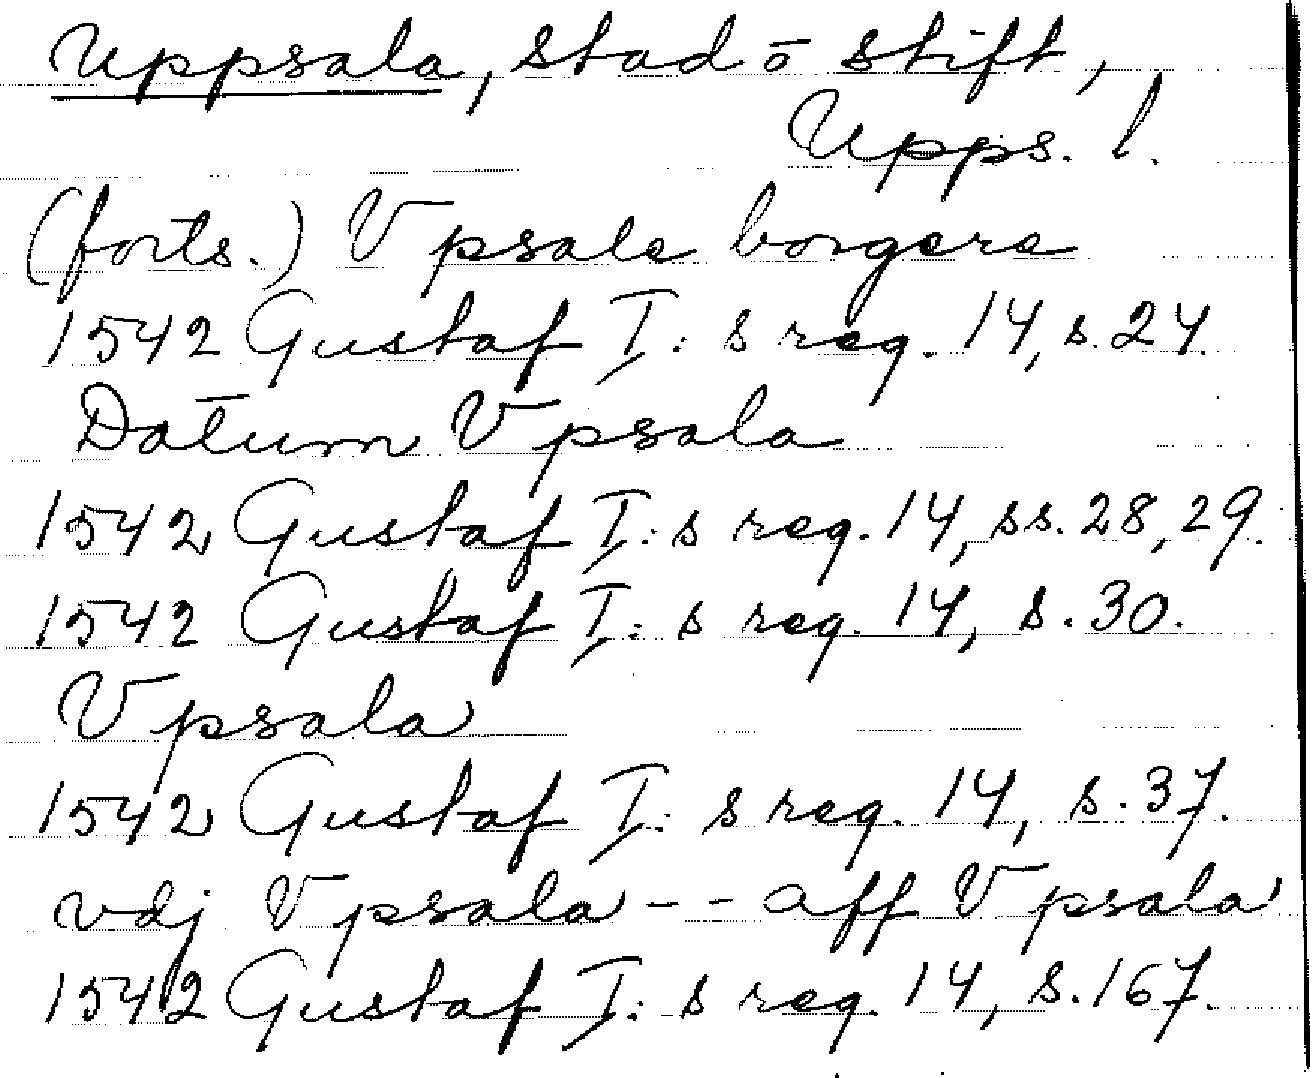 Uppsala, stad o stift,
Upps. l.
(forts.) Vpsale borgere
1542 Gustaf I:s reg. 14, s. 24.
Datum Vpsala
1542 Gustaf I:s reg. 14, ss. 28, 29.
1542 Gustaf I:s reg. 14, s. 30.
Vpsala
1542 Gustaf I:s reg. 14, s. 37.
vdj Vpsala - - aff Vpsala
1542 Gustaf I:s reg. 14, s. 167.